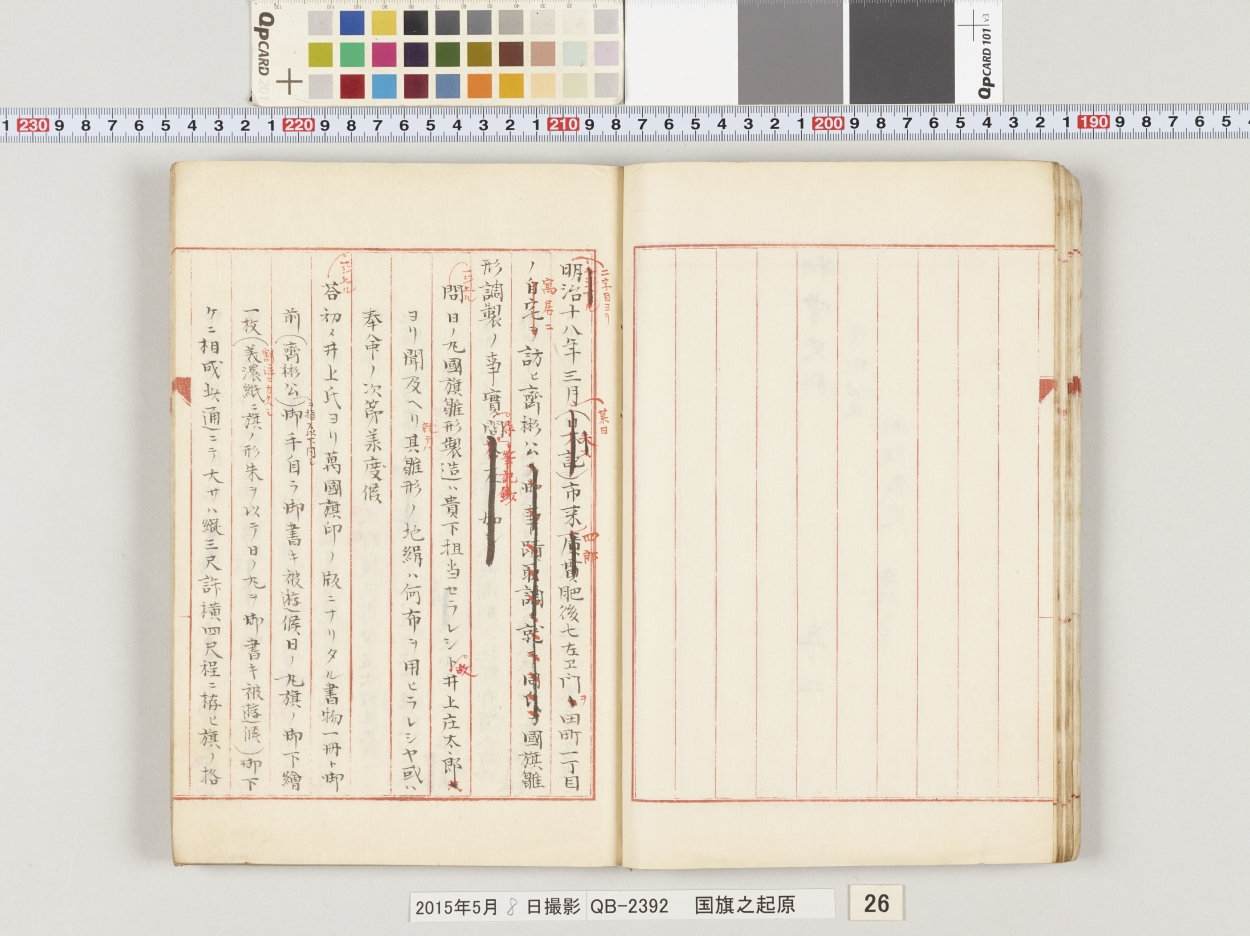 QpCARD 101 v3
QpCARD 201
1 230 9 8 7 6 5 4 3 2 1 220 9 8 7 6 5 4 3 2 1 210 9 8 7 6 5 4 3 2 1 200 9 8 7 6 5 4 3 2 1 190 9 8 7 6 5 4
二字目ヨリ
明治十八年三月(日不記)市来廣貫肥後七左ヱ門ヲ田町一丁目
某日
四郎
ノ自宅ヲ訪ヒ齊彬公ノ御事蹟取調ニ就テ國旗雛
寓居ニ
形調製ノ事實問答左ノ如シ
筆記
問 日ノ丸國旗雛形製造ハ貴下担当セラレシト井上庄太郎
故
ヨリ聞及ヘリ其雛形ノ地絹ハ何布ヲ用ヒラレシヤ或ハ
奉命ノ次第承度候
答 初メ井上氏ヨリ萬國旗印ノ版ニナリタル書物一冊ト御
前(齊彬公)御手自ラ御書キ被遊候日ノ丸旗ノ御下繪
一枚(美濃紙ニ旗ノ形朱ヲ以テ日ノ丸ヲ御書キ被遊候)御下
ケニ相成此通ニテ大サハ縦三尺許横四尺程ニ拵ヒ旗ノ格
2015年5月8日撮影 QB-2392 国旗之起原
26